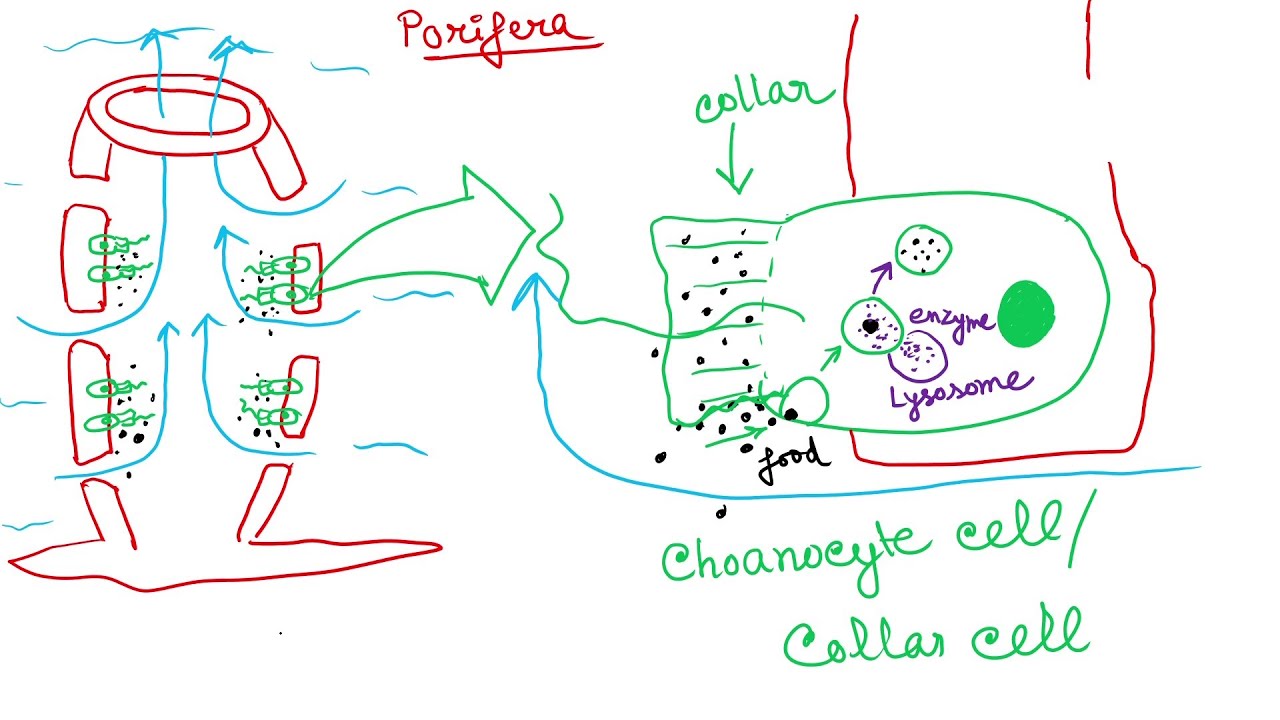 Porifera
collar
enzyme
Lysosome
food
Choanocyte cell/
Collar cell